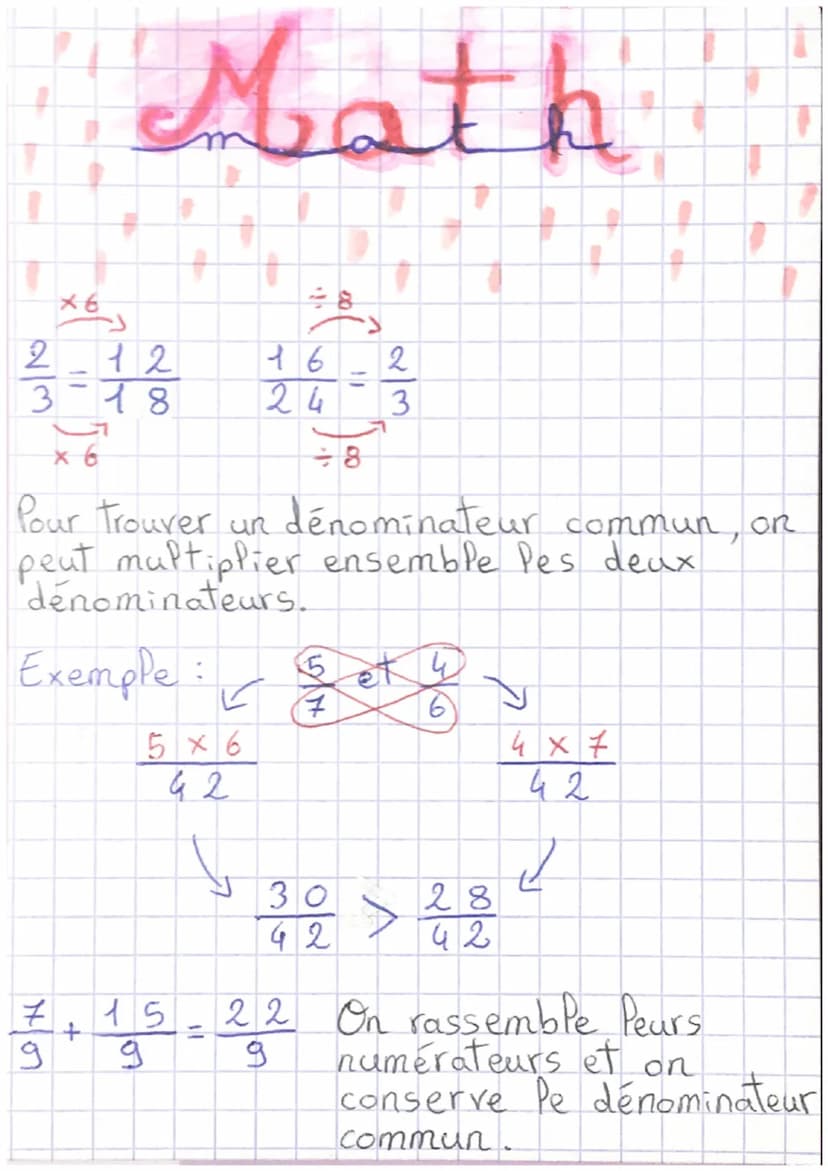 Math
math
×6 ÷8
2/3 = 12/18 16/24 = 2/3
×6 ÷8
Pour trouver un dénominateur commun, on
peut multiplier ensemble les deux
dénominateurs.
Exemple : 5/7 et 4/6
5 × 6 / 42 4 × 7 / 42
30/42 > 28/42
7/9 + 15/9 = 22/9 On rassemble leurs
numérateurs et on
conserve le dénominateur
commun.